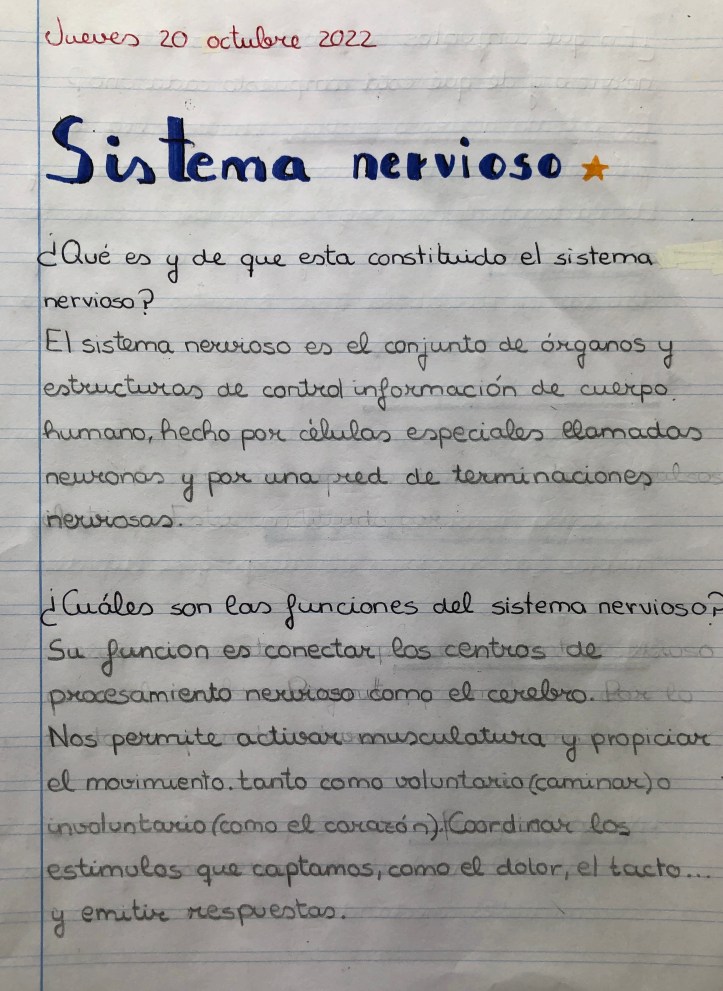 Jueves 20 octubre 2022
Sistema nervioso
¿Qué es y de que esta constituido el sistema
nervioso?
El sistema nervioso es el conjunto de órganos y
estructuras de control información de cuerpo
humano, hecho por células especiales llamadas
neuronas y por una red de terminaciones
nerviosas.
¿Cuáles son las funciones del sistema nervioso?
Su funcion es conectar los centros de
procesamiento nervioso como el cerebro.
Nos permite activar musculatura y propiciar
el movimiento. tanto como voluntario (caminar) o
involuntario (como el corazón). Coordinar los
estimulos que captamos, como el dolor, el tacto...
y emitir respuestas.